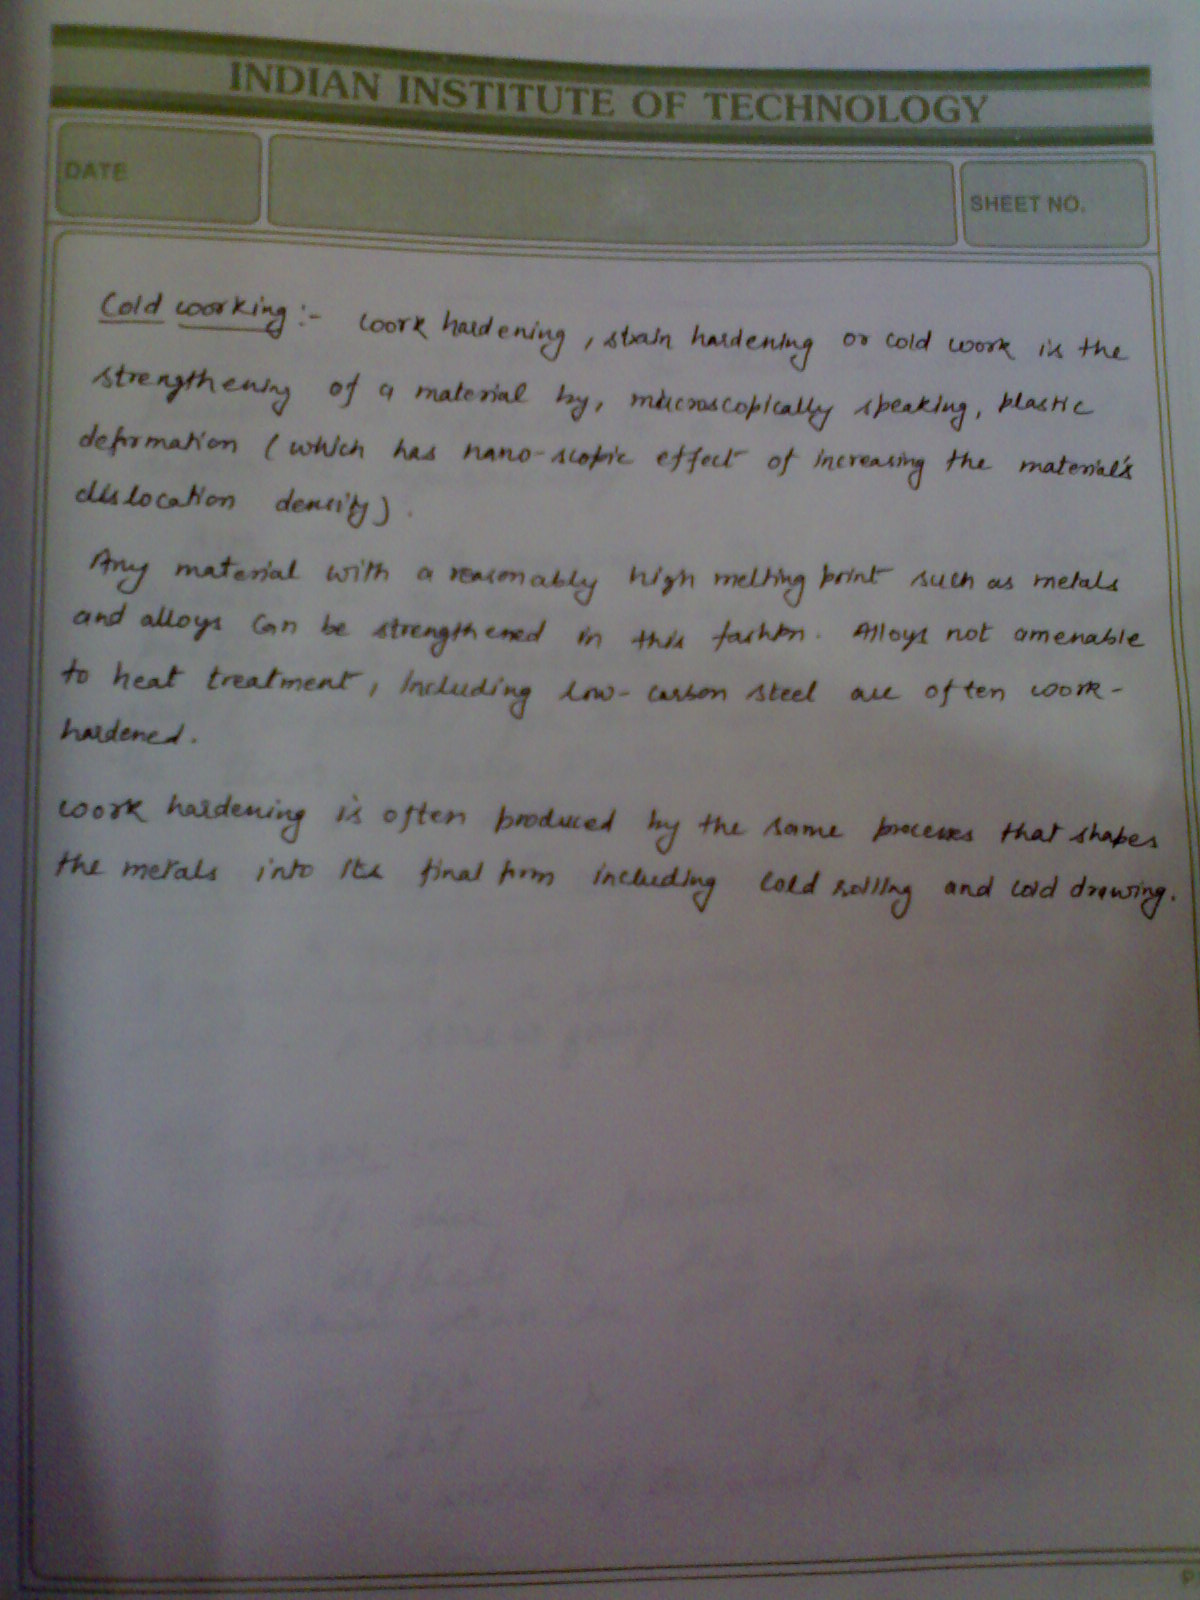 INDIAN INSTITUTE OF TECHNOLOGY
DATE
SHEET NO.
Cold working :- work hardening, strain hardening or cold work is the
strengthening of a material by, macroscopically speaking, plastic
deformation (which has nano-scopic effect of increasing the material's
dislocation density).
Any material with a reasonably high melting point such as metals
and alloys can be strengthened in this fashion. Alloys not amenable
to heat treatment, including low-carbon steel are often work-
hardened.
work hardening is often produced by the same process that shapes
the metals into its final form including cold rolling and cold drawing.